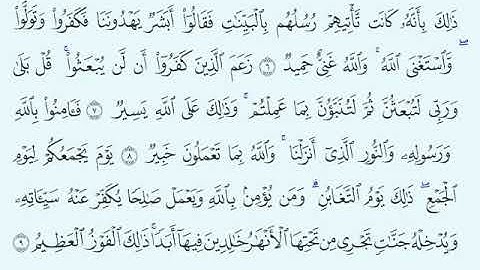 ذَٰلِكَ بِأَنَّهُۥ كَانَت تَّأْتِيهِمْ رُسُلُهُم بِالْبَيِّنَاتِ فَقَالُوٓا۟ أَبَشَرٌ يَهْدُونَنَا فَكَفَرُوا۟ وَتَوَلَّوا۟ ۖ
وَّاسْتَغْنَى اللَّهُ ۚ وَاللَّهُ غَنِىٌّ حَمِيدٌ ۝٦ زَعَمَ الَّذِينَ كَفَرُوٓا۟ أَن لَّن يُبْعَثُوا۟ ۚ قُلْ بَلَىٰ
وَرَبِّى لَتُبْعَثُنَّ ثُمَّ لَتُنَبَّؤُنَّ بِمَا عَمِلْتُمْ ۚ وَذَٰلِكَ عَلَى اللَّهِ يَسِيرٌ ۝٧ فَـَٔامِنُوا۟ بِاللَّهِ
وَرَسُولِهِۦ وَالنُّورِ الَّذِىٓ أَنزَلْنَا ۚ وَاللَّهُ بِمَا تَعْمَلُونَ خَبِيرٌ ۝٨ يَوْمَ يَجْمَعُكُمْ لِيَوْمِ
الْجَمْعِ ۖ ذَٰلِكَ يَوْمُ التَّغَابُنِ ۗ وَمَن يُؤْمِنۢ بِاللَّهِ وَيَعْمَلْ صَٰلِحًا يُكَفِّرْ عَنْهُ سَيِّـَٔاتِهِۦ
وَيُدْخِلْهُ جَنَّٰتٍ تَجْرِى مِن تَحْتِهَا الْأَنْهَٰرُ خَٰلِدِينَ فِيهَآ أَبَدًا ۚ ذَٰلِكَ الْفَوْزُ الْعَظِيمُ ۝٩